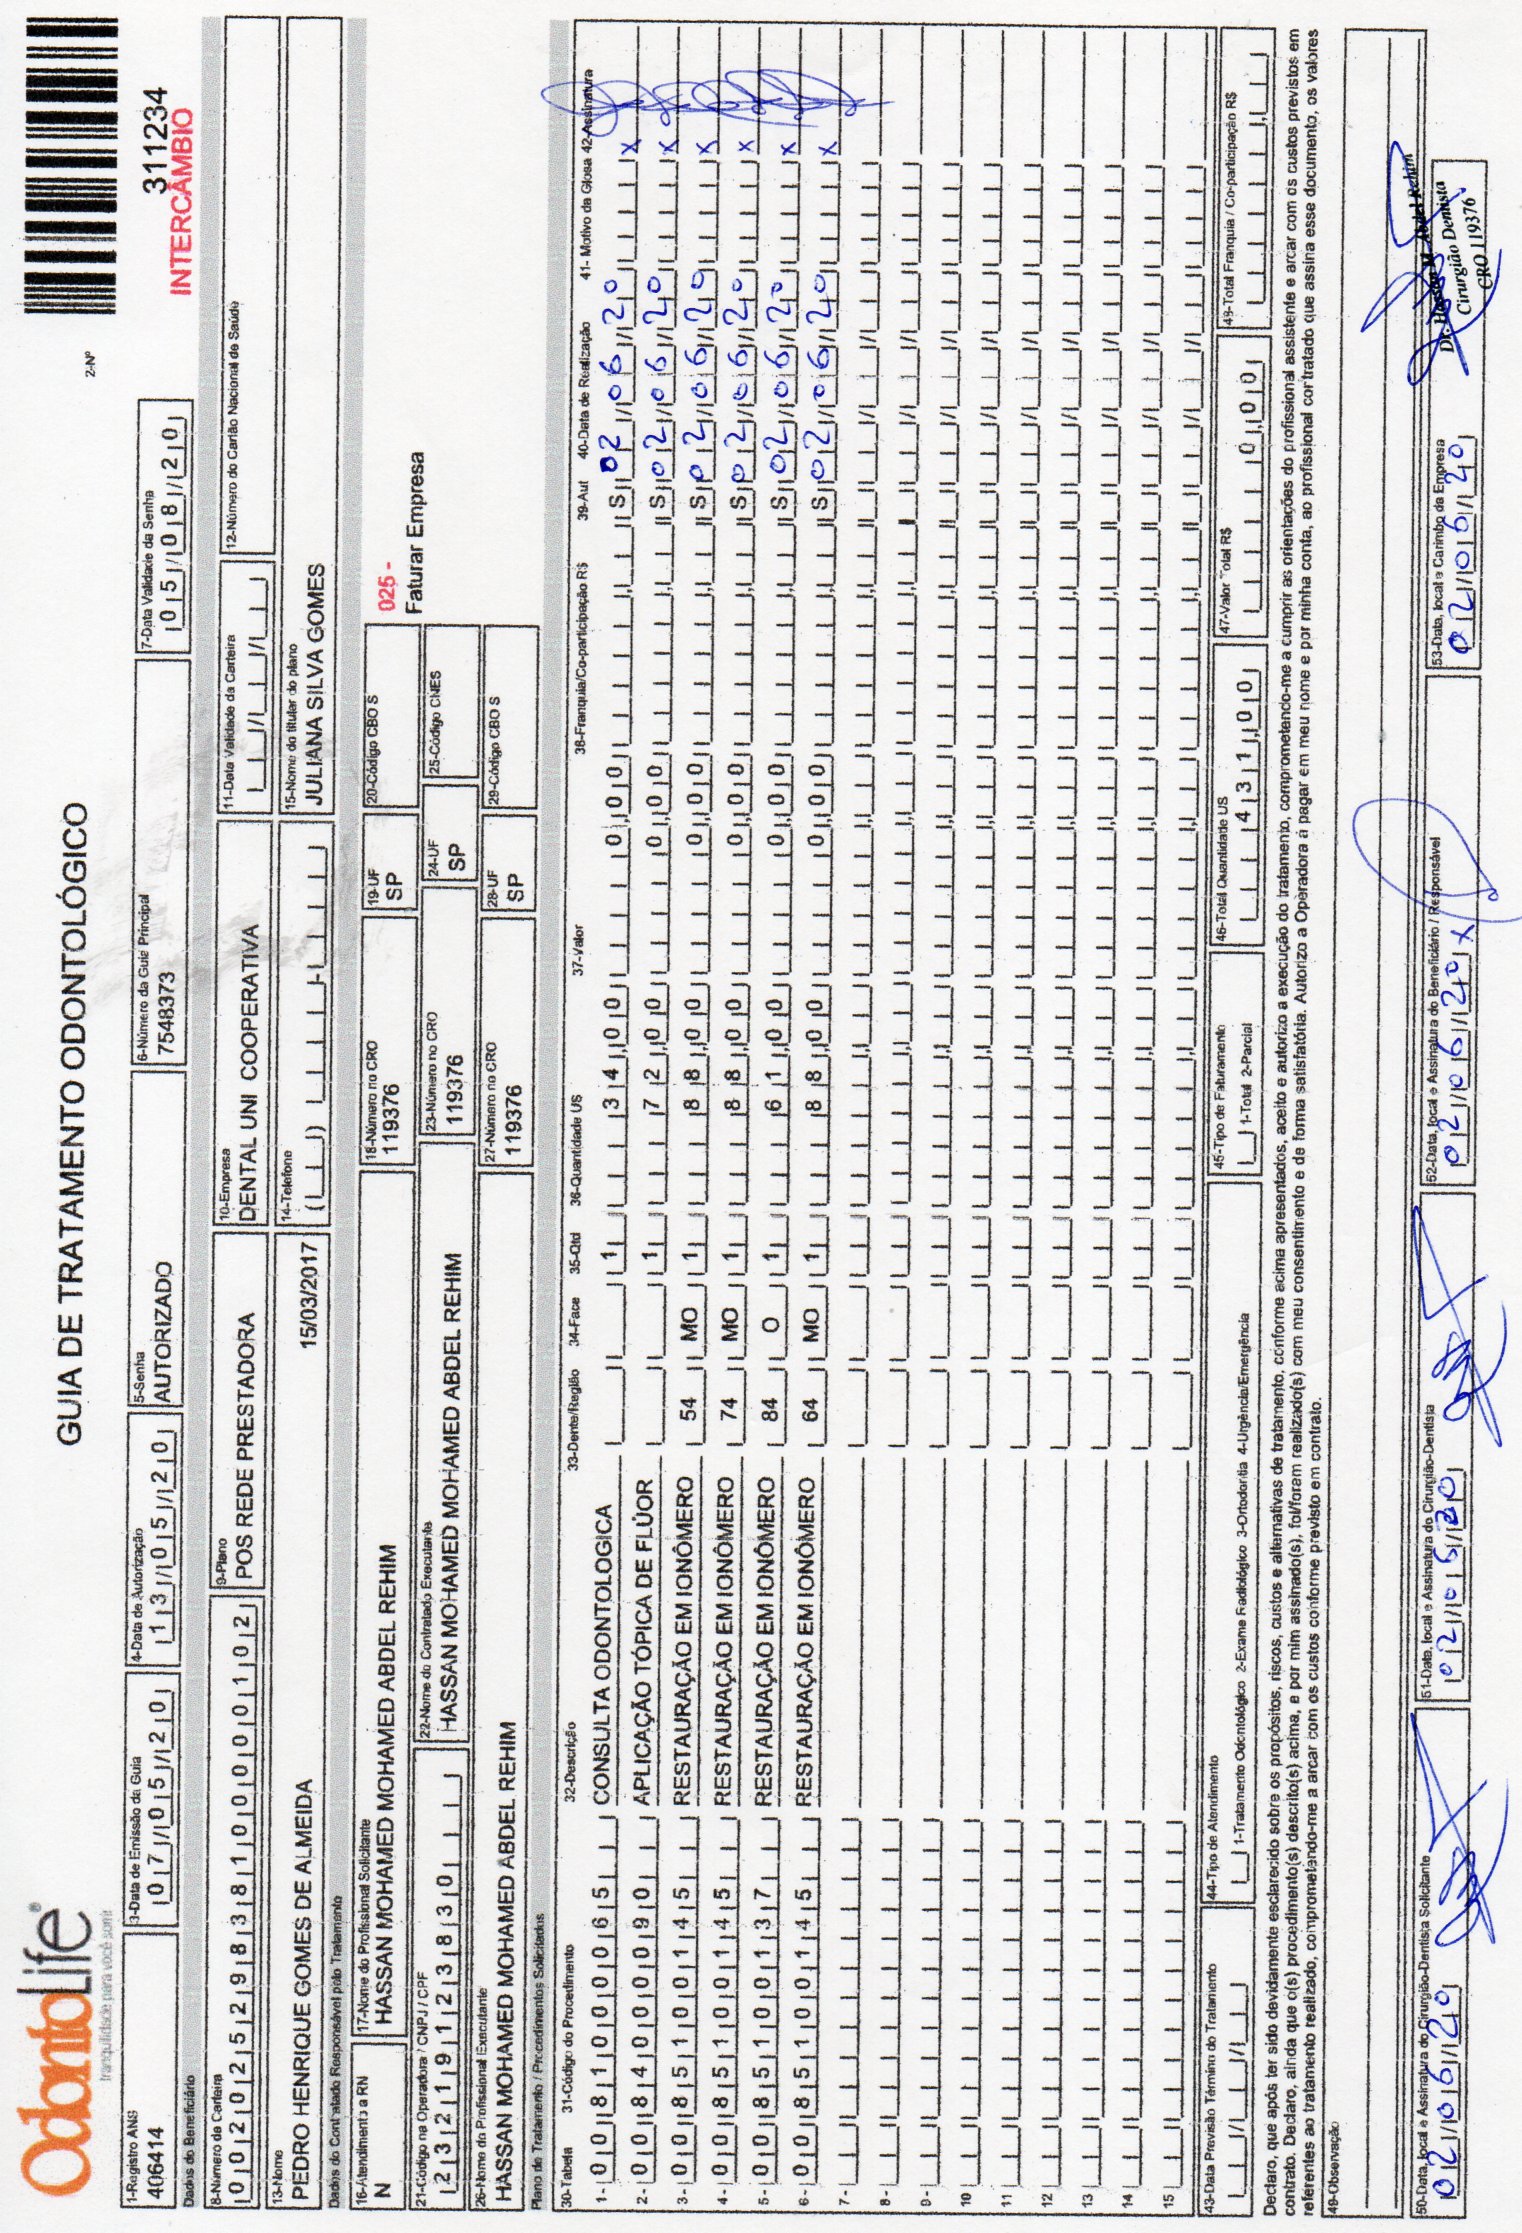 OdontoLife
tranquilidade para você sorrir
GUIA DE TRATAMENTO ODONTOLÓGICO
2-Nº
311234
INTERCÂMBIO
1-Registro ANS
406414
3-Data de Emissão da Guia
07/05/20
4-Data de Autorização
13/05/20
5-Senha
AUTORIZADO
6-Número da Guia Principal
7548373
7-Data Validade da Senha
05/08/20
Dados do Beneficiário
8-Número da Carteira
00202529838100000102
9-Plano
POS REDE PRESTADORA
10-Empresa
DENTAL UNI COOPERATIVA
11-Data Validade da Carteira
12-Número do Cartão Nacional de Saúde
13-Nome
PEDRO HENRIQUE GOMES DE ALMEIDA
15/03/2017
14-Telefone
15-Nome do titular do plano
JULIANA SILVA GOMES
Dados do Contratado Responsável pelo Tratamento
16-Atendimento a RN
N
17-Nome do Profissional Solicitante
HASSAN MOHAMED MOHAMED ABDEL REHIM
18-Número no CRO
119376
19-UF
SP
20-Código CBO S
025 -
Faturar Empresa
21-Código na Operadora / CNPJ / CPF
23219123830
22-Nome do Contratado Executante
HASSAN MOHAMED MOHAMED ABDEL REHIM
23-Número no CRO
119376
24-UF
SP
25-Código CNES
26-Nome do Profissional Executante
HASSAN MOHAMED MOHAMED ABDEL REHIM
27-Número no CRO
119376
28-UF
SP
29-Código CBO S
Plano de Tratamento / Procedimentos Solicitados
30-Tabela 31-Código do Procedimento 32-Descrição 33-Dente/Região 34-Face 35-Qtd 36-Quantidade US 37-Valor 38-Franquia/Co-participação R$ 39-Aut 40-Data de Realização 41- Motivo da Glosa 42-Assinatura
1- 00 81000065 CONSULTA ODONTOLOGICA 1 34,00 0,00 S 02/06/20 X
2- 00 84000090 APLICAÇÃO TÓPICA DE FLÚOR 1 72,00 0,00 S 02/06/20 X
3- 00 85100145 RESTAURAÇÃO EM IONÔMERO 54 MO 1 88,00 0,00 S 02/06/20 X
4- 00 85100145 RESTAURAÇÃO EM IONÔMERO 74 MO 1 88,00 0,00 S 02/06/20 X
5- 00 85100137 RESTAURAÇÃO EM IONÔMERO 84 O 1 61,00 0,00 S 02/06/20 X
6- 00 85100145 RESTAURAÇÃO EM IONÔMERO 64 MO 1 88,00 0,00 S 02/06/20 X
7-
8-
9-
10
11
12
13
14
15
43-Data Previsão Término do Tratamento
44-Tipo de Atendimento
1-Tratamento Odontológico 2-Exame Radiológico 3-Ortodontia 4-Urgência/Emergência
45-Tipo de Faturamento
1-Total 2-Parcial
46-Total Quantidade US
431,00
47-Valor Total R$
0,00
48-Total Franquia / Co-participação R$
Declaro, que após ter sido devidamente esclarecido sobre os propósitos, riscos, custos e alternativas de tratamento, conforme acima apresentados, aceito e autorizo a execução do tratamento, comprometendo-me a cumprir as orientações do profissional assistente e arcar com os custos previstos em
contrato. Declaro, ainda que o(s) procedimento(s) descrito(s) acima, e por mim assinado(s), foi/foram realizado(s) com meu consentimento e de forma satisfatória. Autorizo a Operadora a pagar em meu nome e por minha conta, ao profissional contratado que assina esse documento, os valores
referentes ao tratamento realizado, comprometendo-me a arcar com os custos conforme previsto em contrato.
49-Observação
50-Data, local e Assinatura do Cirurgião-Dentista Solicitante
02/06/20
51-Data, local e Assinatura do Cirurgião-Dentista
02/06/20
52-Data, local e Assinatura do Beneficiário / Responsável
02/06/20 X
53-Data, local e Carimbo da Empresa
02/06/20
Dr. Hassan M. Abdel Rehim
Cirurgião Dentista
CRO 119376